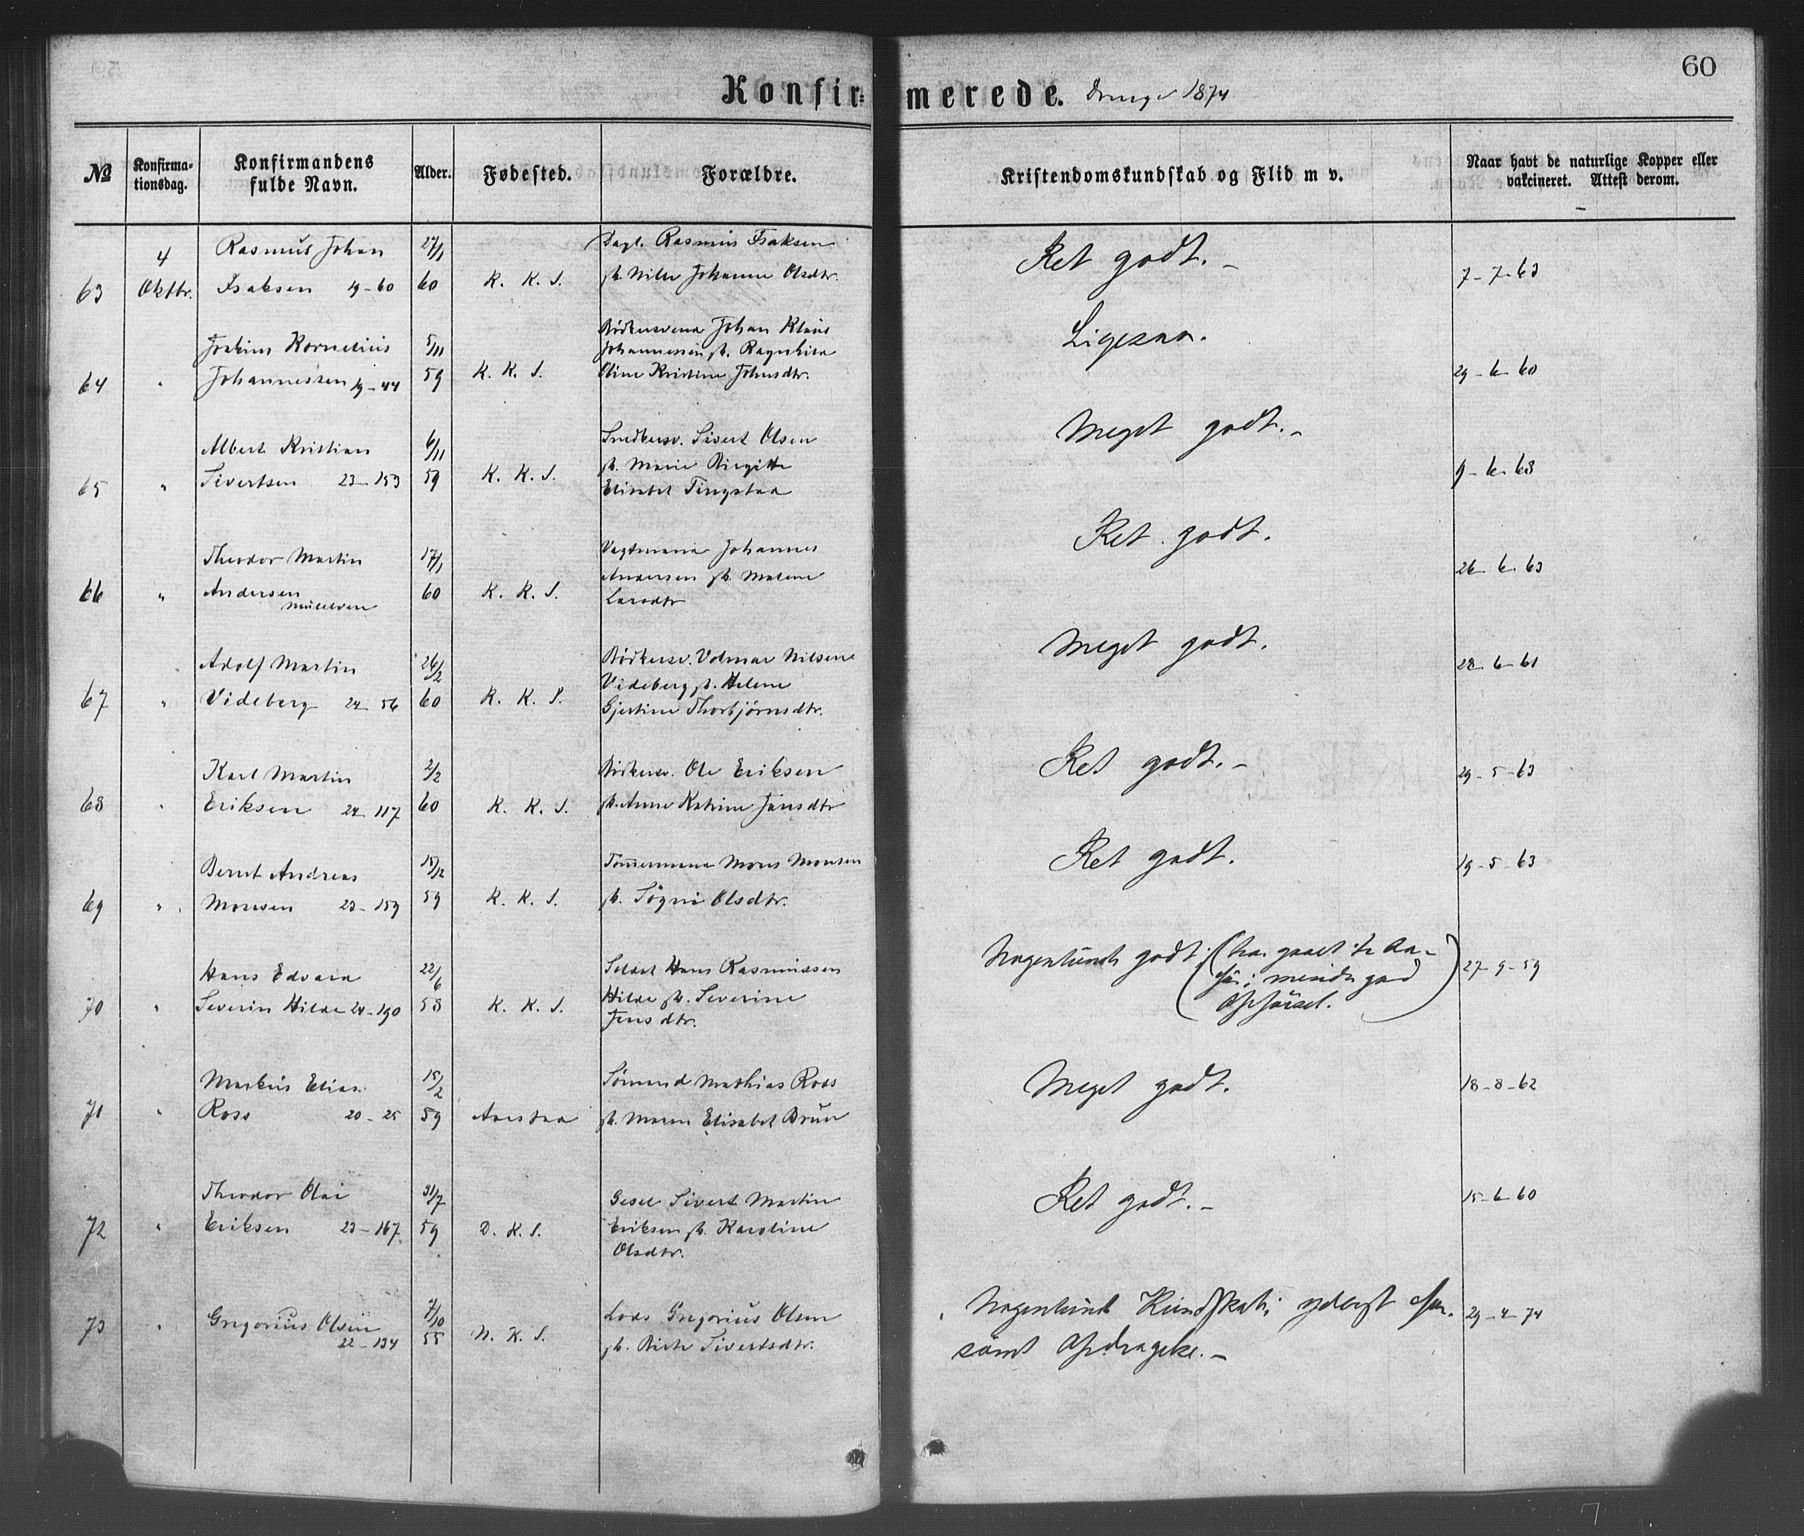 60
Konfirmerede. Drenge 1874
№ Konfirmationsdag. Konfirmandens fulde Navn. Alder. Fødested. Forældre. Kristendomskundskab og Flid m v. Naar havt de naturlige Kopper eller vakcineret. Attest derom.
4 Rasmus Johan 27/1 Dagl. Rasmus Isaksen Ret godt. –
63 Oktbr. Isaksen 19–60 60 K. K. S. Johanne Olsdtr. 7–7–63
Joakim Kornelius 5/11 Bødkersvend Johan Klaus Ligesaa.
Johannessen
64 " Johannessen 19–44 59 K. K. S. Oline Kristine Johnsdtr. 29–6–60
Albert Kristian 6/11 Snedkersv. Sivert Olsen Meget godt. –
65 " Sivertsen 23–153 59 K. K. S. Marie Birgitte 9–6–63
Elisabet Tingstad
Theodor Martin 17/1 Vegtmand Johannes Ret godt.
66 " Andersen 60 K. K. S. Andersen Malene 26–6–63
Larsdtr
Adolf Martin 26/2 Bødkersv. Volmar Nilsen Meget godt.
67 " Videberg 24–56 60 K. K. S. Videberg Helene 28–6–61
Gjertine Thorbjørnsdtr.
Karl Martin 2/2 Bødkersv. Ole Eriksen Ret godt. –
68 " Eriksen 24–117 60 K. K. S. Anne Katrine Jansdtr 29–5–63
Bernt Andreas 15/12 Tømmermand Mons Monsen Ret godt.
69 " Monsen 23–159 59 K. K. S. Olsdtr. 19–5–63
Hans Edvard 22/6 Hans Rasmussen Nogenlunde godt (har gaaet
70 " Severin Hilde 24–190 58 K. K. S. Hilde Severine mindre god 27–9–59
Jensdtr. Opførsel.)
Markus Elias 15/2 Sømand Mathias Ross Meget godt.
71 " Ross 20–25 59 Aarstad Maren Elisabet Bruu 18–8–62
Theodor Olai 31/7 Gesel Sivert Martin Ret godt. –
72 " Eriksen 23–167 59 D. K. S. Eriksen Karoline 15–6–60
Olsdtr.
73 " Gregorius Olsen 7/10 Lods Gregorius Olsen Nogenlunde Kundskab; yderst for-
22–134 55 N. K. S. Sivertsdtr. sømt Opdragelse. – 29–4–74